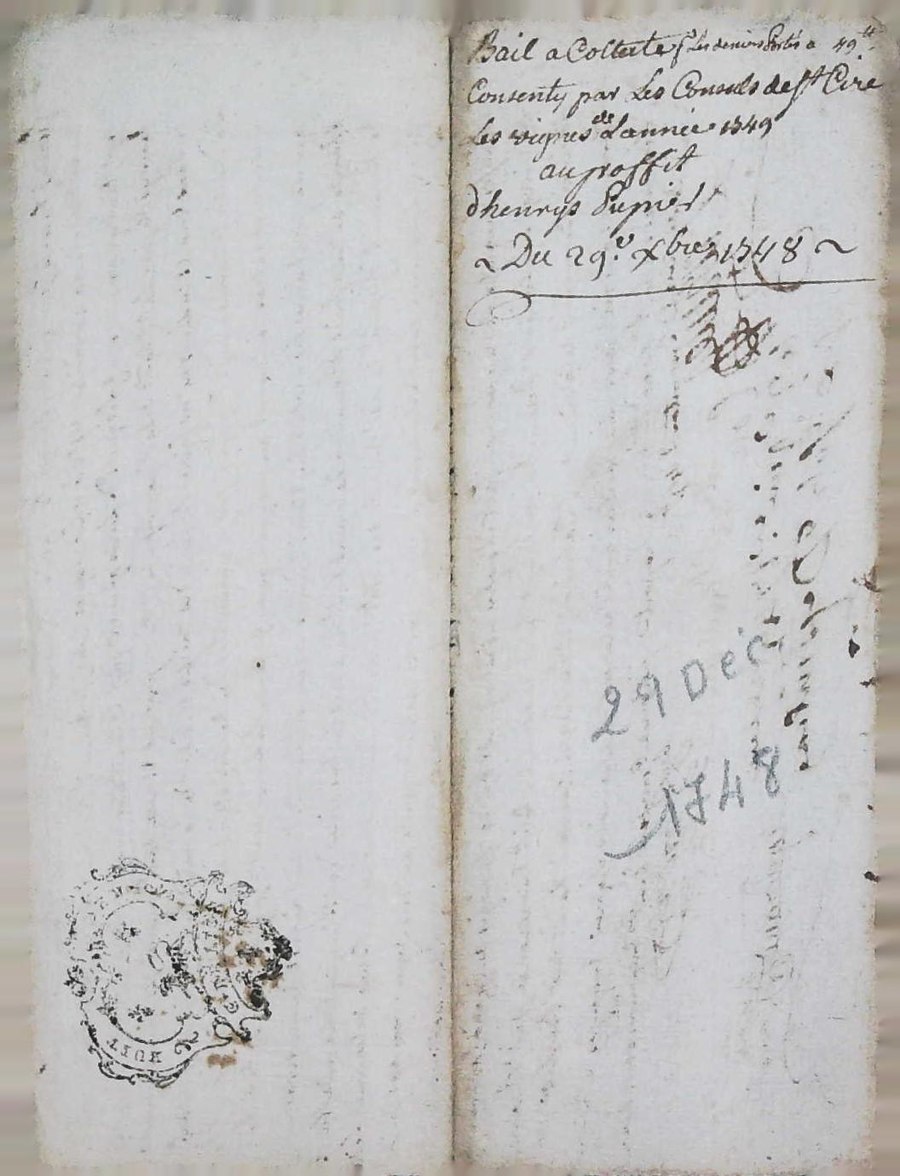 Bail a Collecte Les deniers Portés a 49
Consenty par Les Consuls de St Cire
Les vignes de L'année 1749
au proffit
d'henrys Pupier
Du 29.e Xbre 1748
29 Dec
1748
HUIT